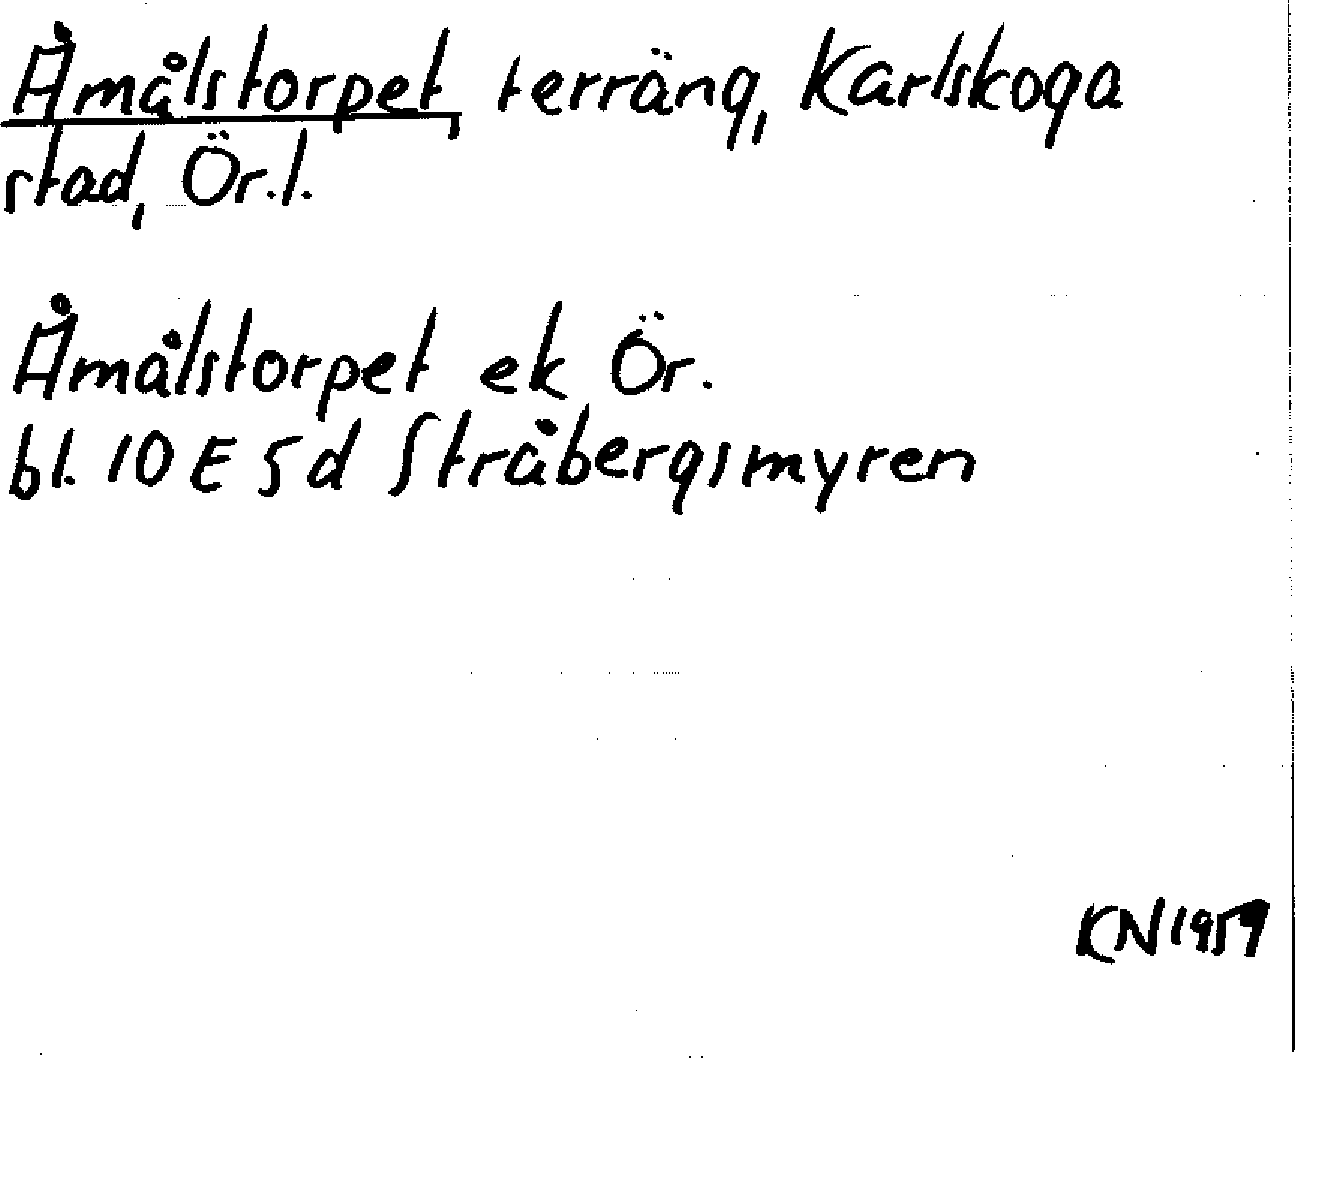 Åmålstorpet, terräng, Karlskoga
stad, Ör.l.
Åmålstorpet ek Ör.
bl. 10 E 5d Stråbergsmyren
KN 1959